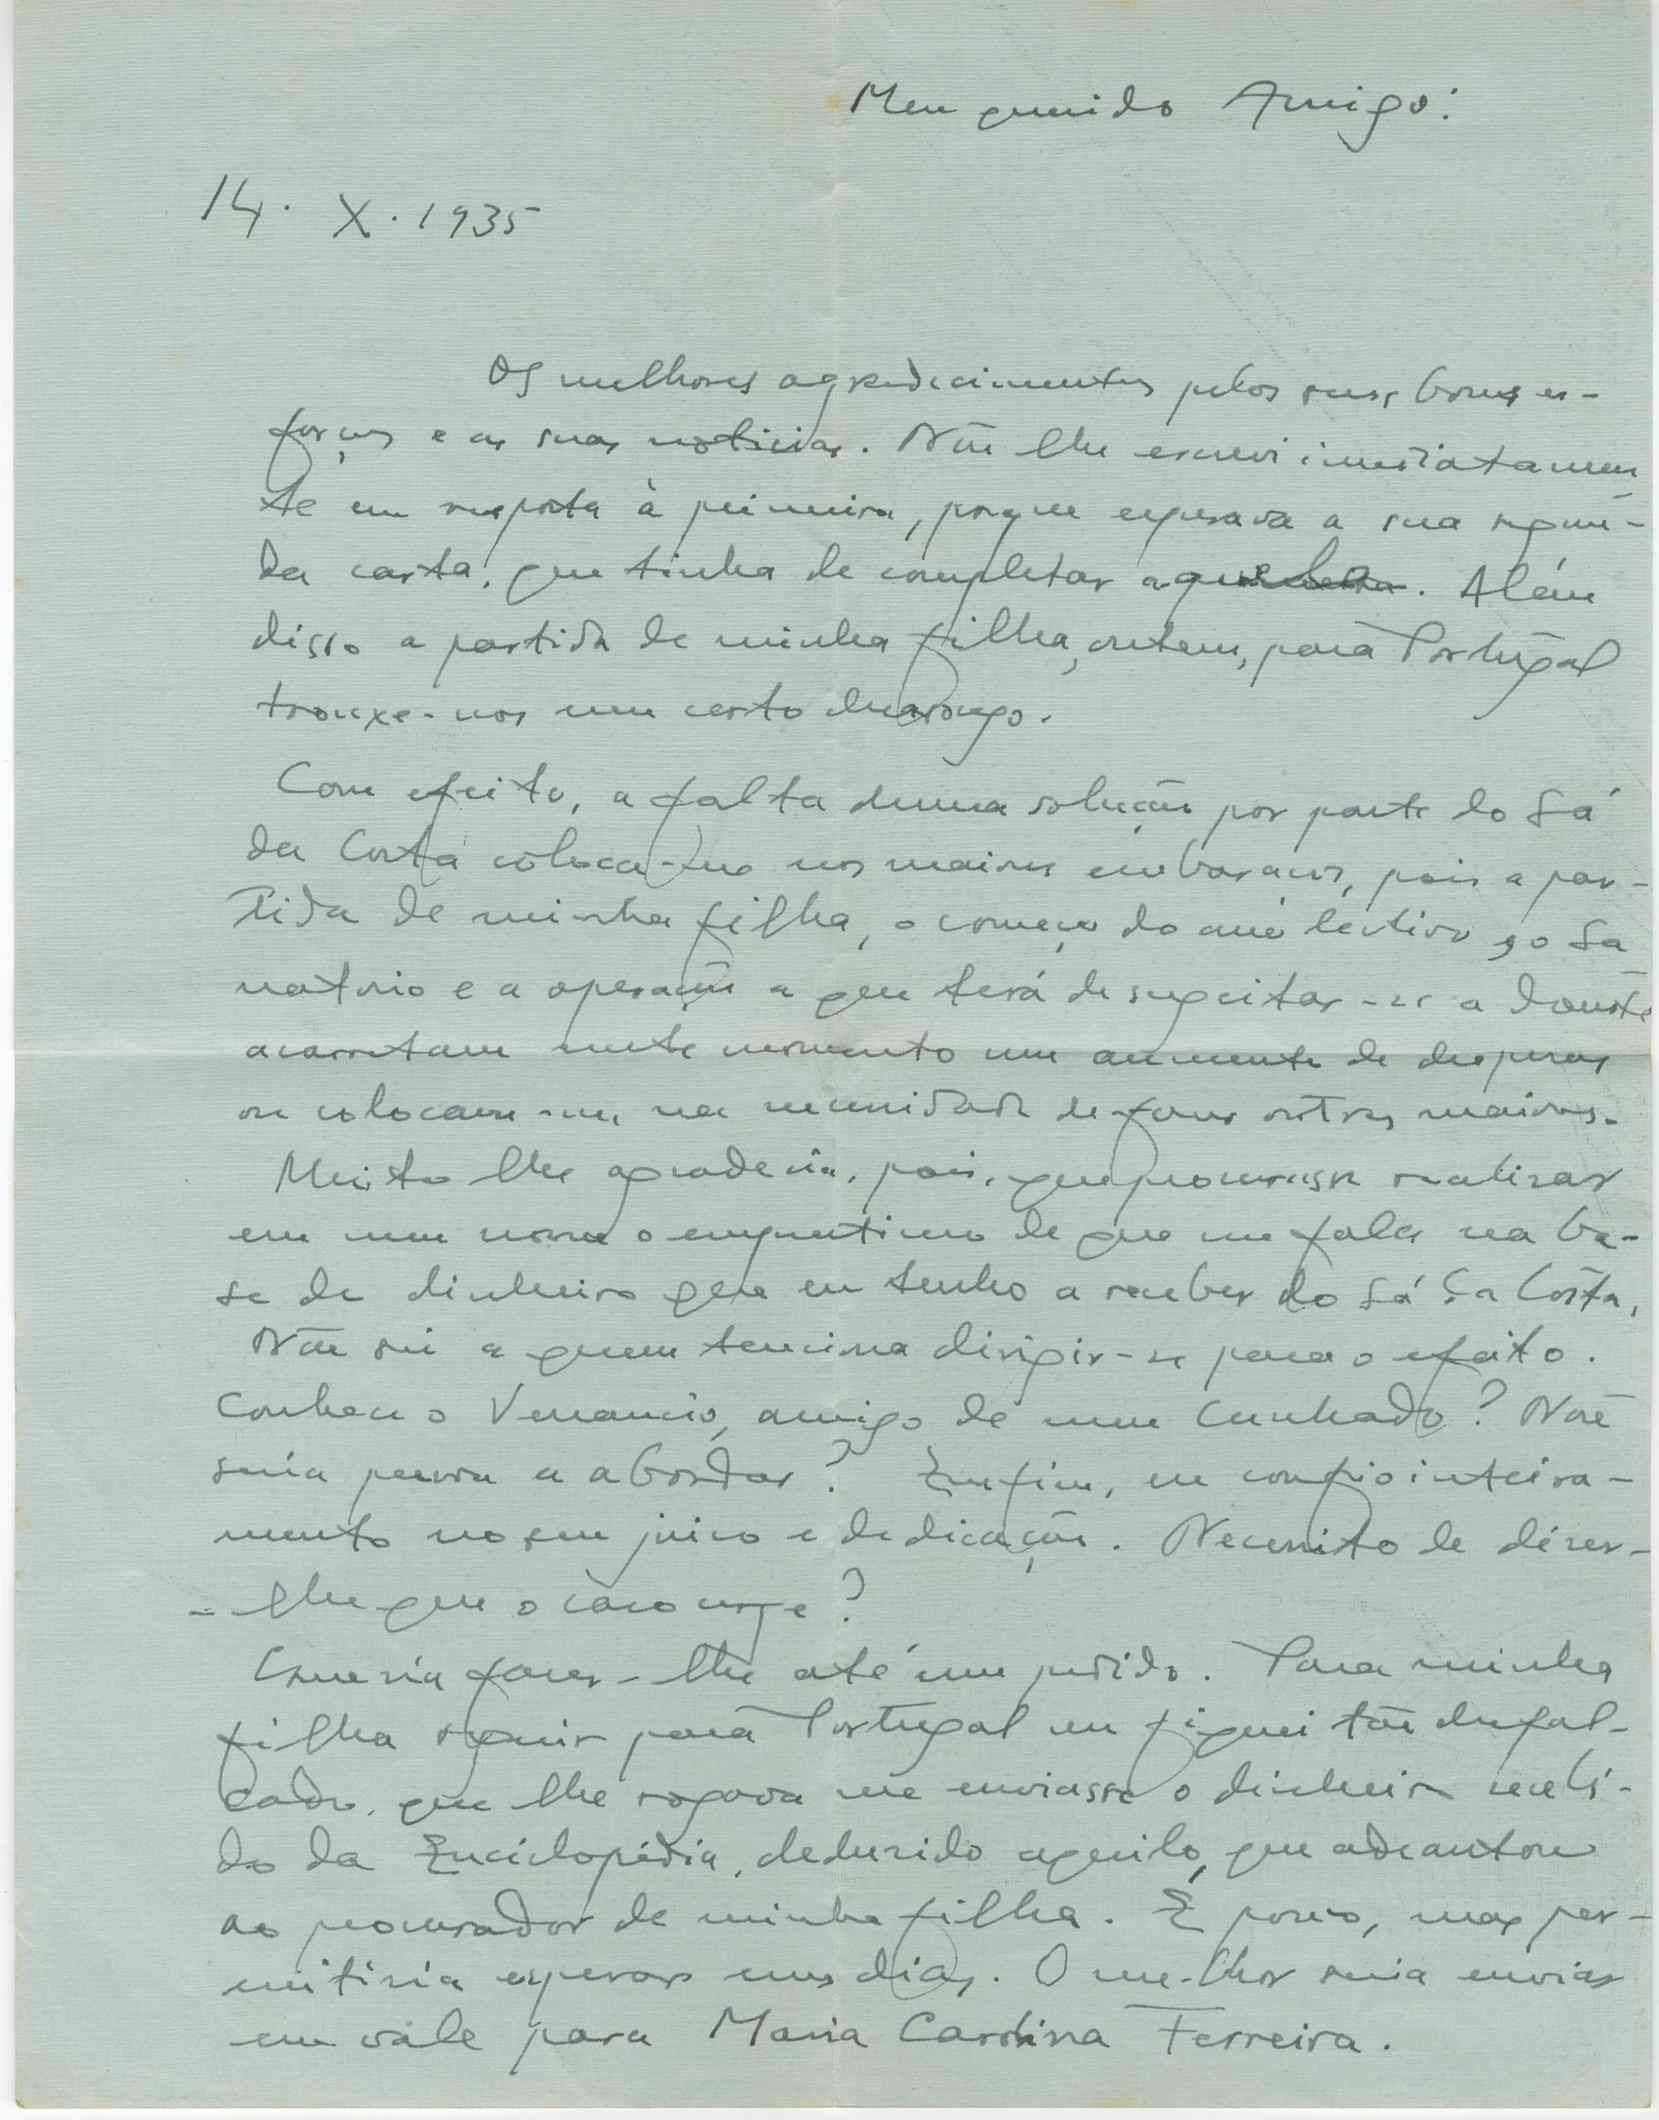 Meu querido Amigo:
14. X. 1935
Os melhores agradecimentos pelos seus bons es-
forços e as suas noticias. Não lhe escrevi imediatamen
te em resposta à primeira, porque esperava a sua segun-
da carta, que tinha de completar aquela. Além
disso a partida de minha filha, ontem, para Portugal
trouxe-nos um certo
Com efeito, a falta duma solução por parte do Sá
da Costa coloca-me nos maiores embaraços, pois a par-
tida de minha filha, o começo do ano lectivo, o Sa
natorio e a operação a que terá de sugeitar-se a doente
acarretam neste momento um aumento de despesas
ou colocam-me na necessidade de fazer outras maiores.
Muito lhe agradecia, pois, que procurasse realizar
em meu nome o emprestimo de que me fala na ba-
se de dinheiro que eu tenho a receber do Sá da Costa.
Não sei a quem tenciona dirigir-se para o efeito.
Conhece o Venancio, amigo de meu cunhado? Não
seria pessoa a abordar? Emfim, eu confio inteira-
mente no seu juizo e dedicação. Necessito de dizer-
-lhe que o caso urge?
Queria fazer-lhe até um pedido. Para minha
filha seguir para Portugal eu fiquei tão desfal-
cado, que lhe rogava me enviasse o dinheiro recebi-
do da Enciclopédia, deduzido aquilo que adeantou
ao procurador de minha filha. É pouco, mas per-
mitiria esperar uns dias. O melhor seria enviar
em vale para Maria Carolina Ferreira.